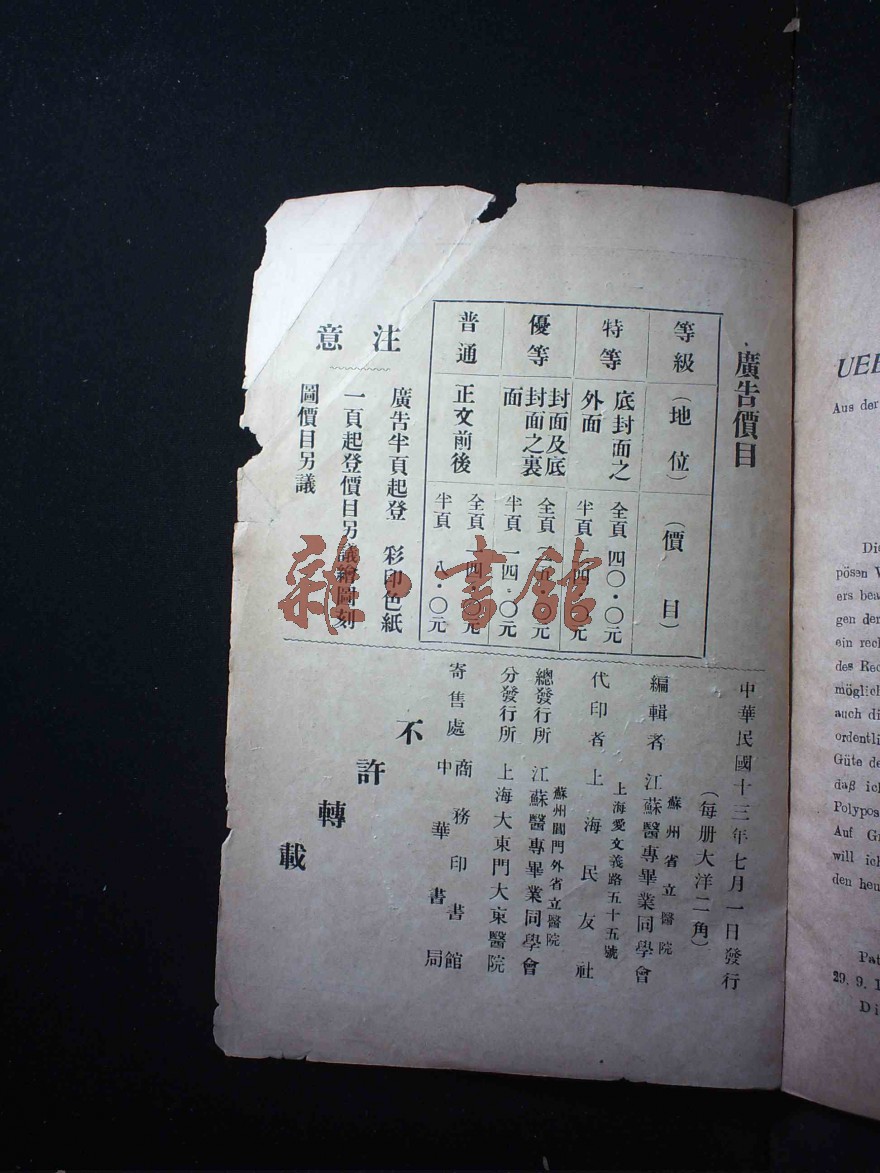 廣告價目
等級 (地位) (價目)
特等 底封面之外面 全頁 四〇·〇元
半頁 二四·〇元
優等 封面及底封面之裏面 全頁 二五·〇元
半頁 一四·〇元
普通 正文前後 全頁 一四·〇元
半頁 八·〇元
注意
廣告半頁起登 彩印色紙
一頁起登價目另議繪圖刻
圖價目另議
中華民國十三年七月一日發行
(每册大洋二角)
蘇州省立醫院
編輯者 江蘇醫專畢業同學會
上海愛文義路五十五號
代印者 上海民友社
蘇州閶門外省立醫院
總發行所 江蘇醫專畢業同學會
分發行所 上海大東門大東醫院
寄售處 商務印書館
中華書局
不許轉載
雜·書館
UEB
Aus der
Die
pösen V
ers bea
gen der
ein rech
des Rec
möglich
auch di
ordentli
Güte de
daß ich
Polypos
Auf Gr
will ich
den heu
Pat
29. 9. 1
Di